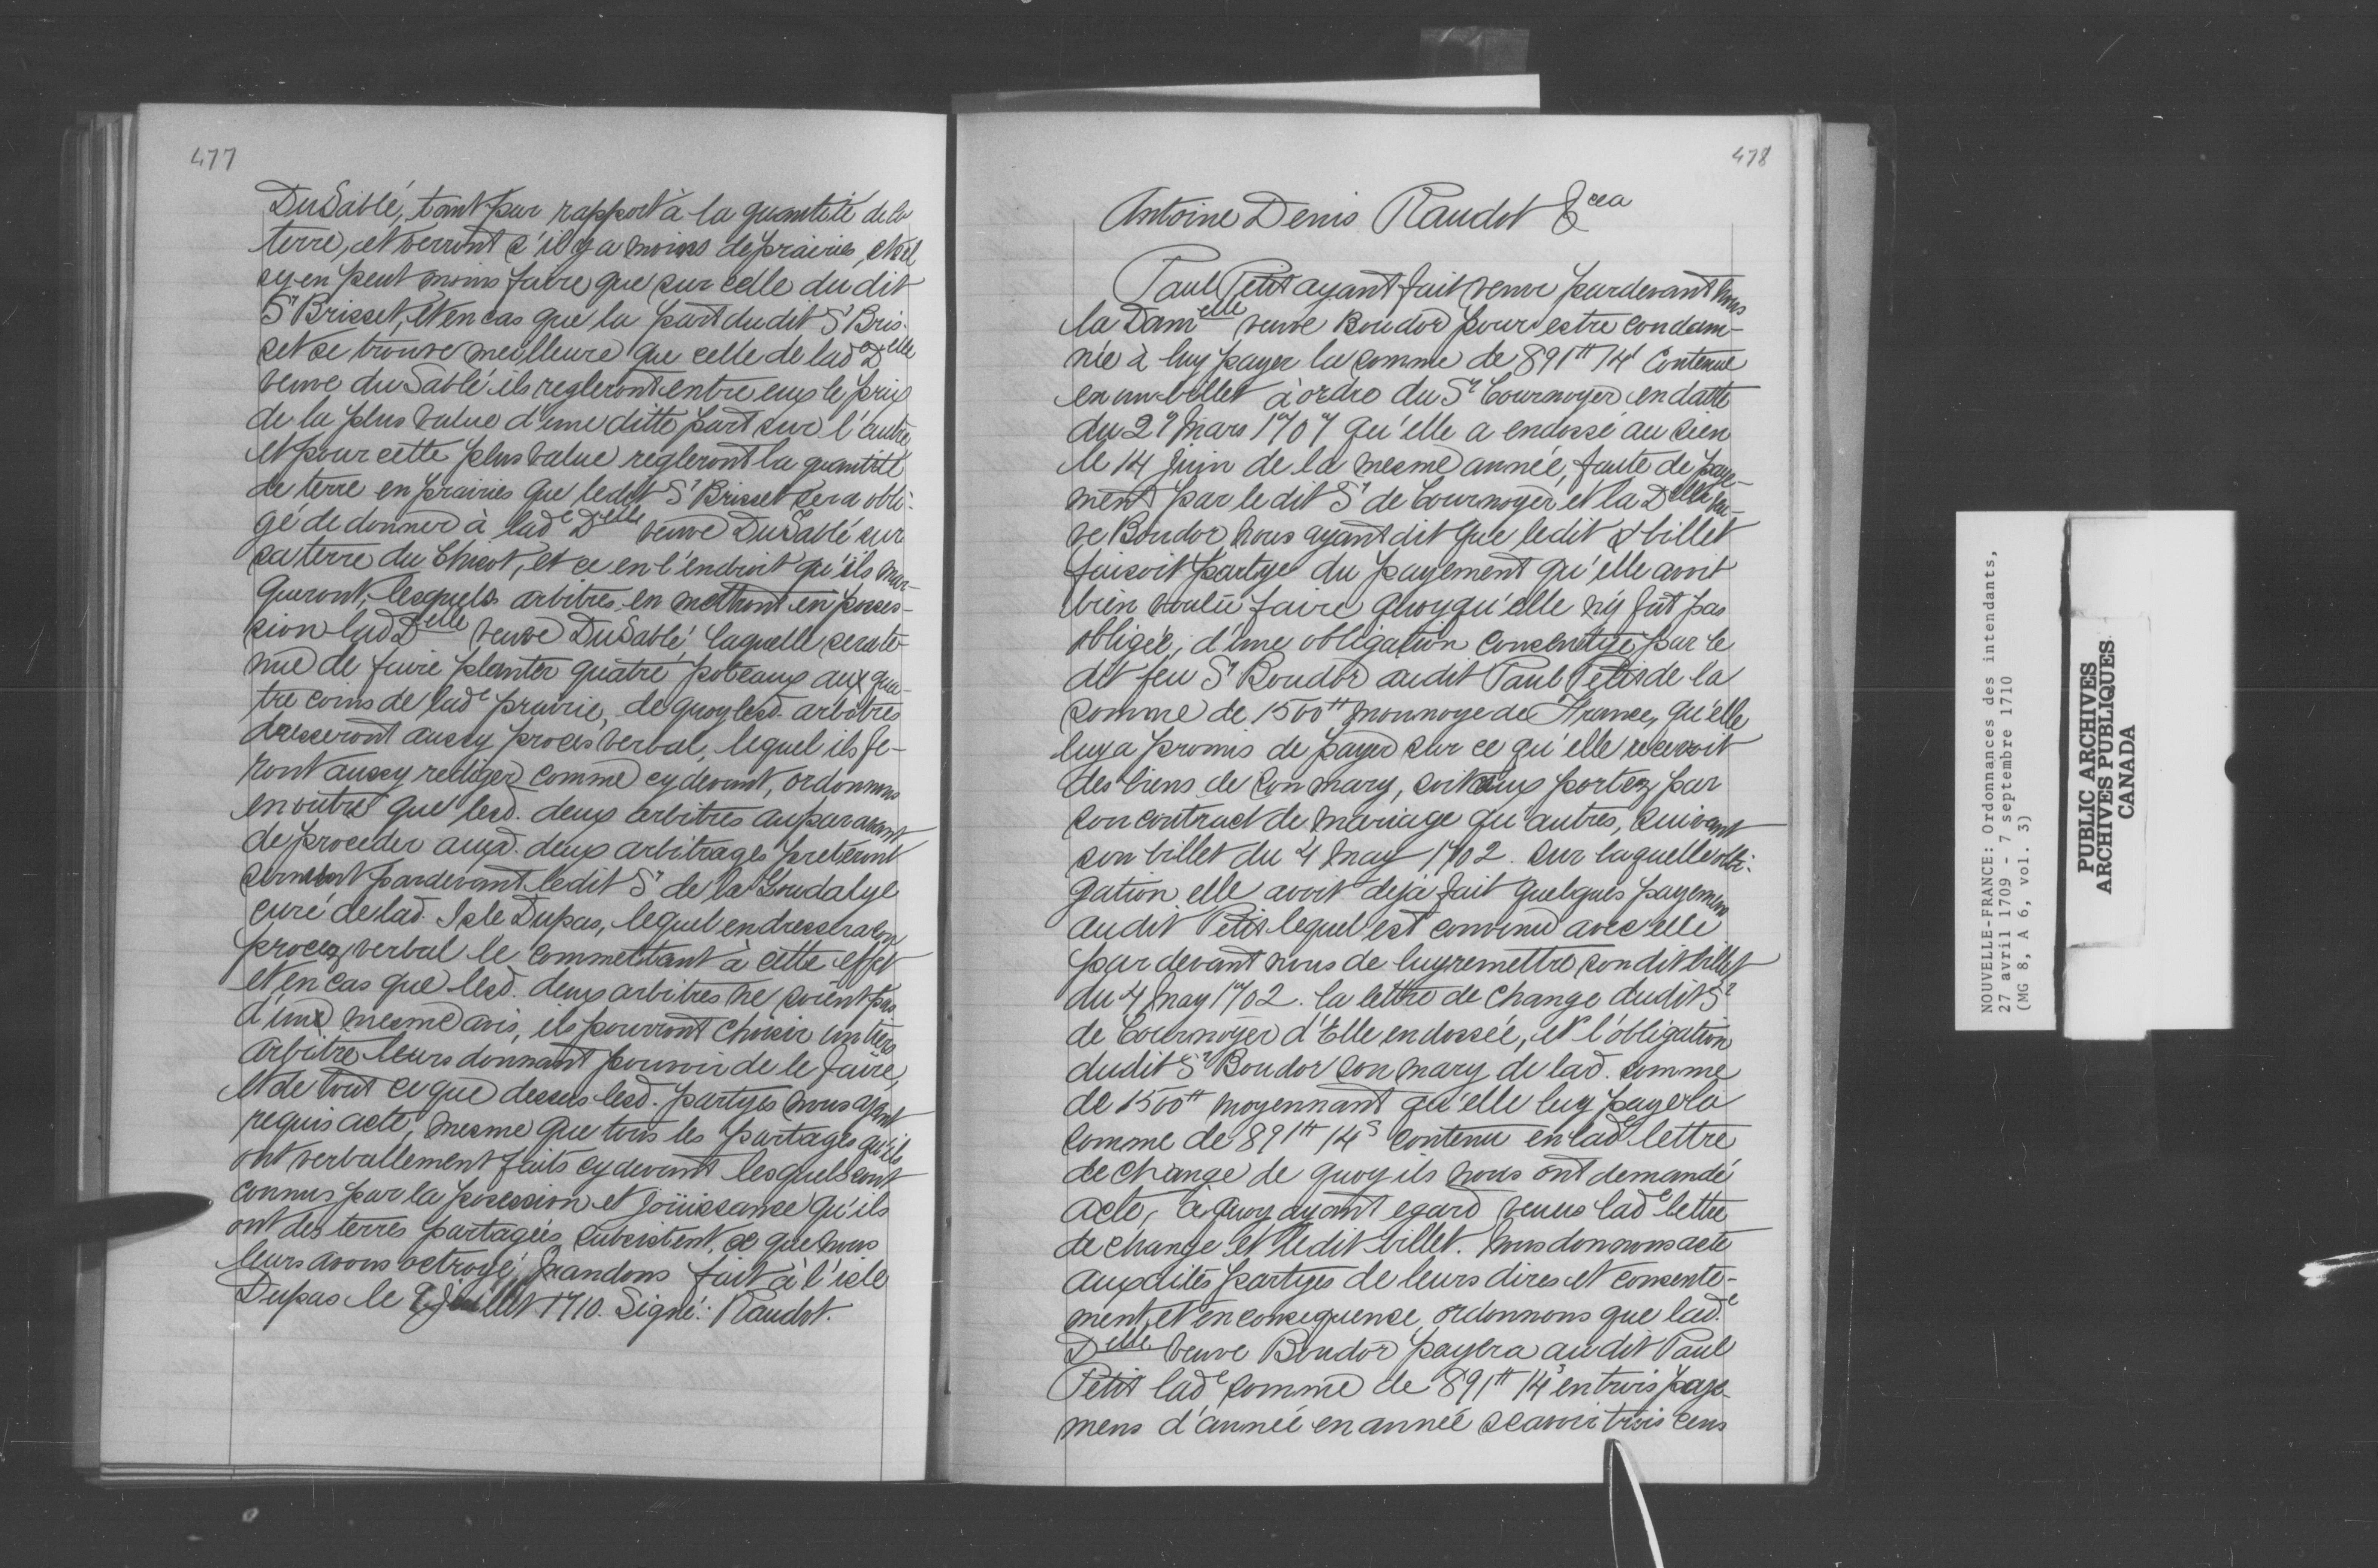 477
DuSablé, tant par rapport à la quantité de la
terre, et verront s'il y a moins de prairies, et s'il
sy en peut moins faire que sur celle du dit
Sr Brisset, et en cas que la part dudit Sr Bris-
set se trouve meilleure que celle de lade Delle
veuve du Sablé ils regleront entre eux le prix
de la plus value d'une ditte part sur l'autre
et pour cette plus value regleront la quantité
de terre en prairies que ledit Sr Brisset sera obli-
gé de donner à lade Delle veuve DuSablé sur
sa terre du Chicot, et ce en l'endroit qu'ils mar-
queront, lesquels arbitres en mettront en posses-
sion lad Delle veuve DuSablé, laquelle sera te-
nue de faire planter quatre poteaux aux qua-
tre coins de lade prairie, de quoy lesd. arbitres
dresseront aussy procés verbal, lequel ils fe-
ront aussy rediger comme cy devant, ordonnons
en outre que lesd. deux arbitres auparavant
de proceder auxd. deux arbitrages preteront
serment pardevant ledit Sr de la Goudalye
curé de lad. Isle Dupas, lequel en dressera son
procez verbal le commettant à cette effet
et en cas que lesd. deux arbitres ne soient pas
d'une mesme avis, ils pourront choisir un tiers
arbitre leurs donnant pouvoir de le faire,
et de tout ce que dessus lesd. partyes nous ayant
requis acte, mesme que tous les partages qu'ils
ont verballement faits cy devant lesquels sont
connus par la possession et joüissance qu'ils
ont des terres partagées subsistent, ce que nous
leurs avons octroyé, Mandons fait à l'isle
Dupas le juillet 1710. Signé: Raudot.
478
Antoine Denis Raudot &cea
Paul Petit ayant fait venir pardevant nous
la Damelle veuve Boudor pour estre condam-
née à luy payer la somme de 891tt 14s contenue
en un billet à ordre du Sr Cournoyer en datte
du 29 Mars 1707 qu'elle a endossé au sien
le 14 Juin de la mesme année, faute de paye-
ment par le dit Sr de Cournoyer et la Delle veu-
ve Boudor nous ayant dit que ledit billet
faisoit partye du payement qu'elle avoit
bien voulu faire quoyqu'elle n'y fût pas
obligée, d'une obligation consentye par le
dit feu Sr Boudor audit Paul Petit de la
somme de 1500tt monnoye de France, qu'elle
luy a promis de payer sur ce qu'elle recevroit
des biens de son mary, soit eux portez par
son contract de mariage qu'autres, suivant
son billet du 4 May 1702. sur laquelle obli-
gation elle avoit deja fait quelques payemens
audit Petit lequel est convenu avec elle
par devant nous de luy remettre son dit billet
du 4 May 1702. la lettre de change dudit Sr
de Cournoyer d'Elle endossée, et l'obligation
dudit Sr Boudor son mary de lad. somme
de 1500tt moyennant qu'elle luy paye la
somme de 891tt 14s contenu en lade lettre
de change de quoy ils nous ont demandé
acte, à quoy ayant egard veues lade lettre
de change et ledit billet. Nous donnons acte
auxdites partyes de leurs dires et consente-
ment, et en consequence ordonnons que lade
Delle veuve Boudor payera audit Paul
Petit lade somme de 891tt 14s en trois paye-
mens d'année en année scavoir trois cens
NOUVELLE-FRANCE: Ordonnances des intendants,
27 avril 1709 - 7 septembre 1710
(MG 8, A 6, vol. 3)
PUBLIC ARCHIVES
ARCHIVES PUBLIQUES
CANADA